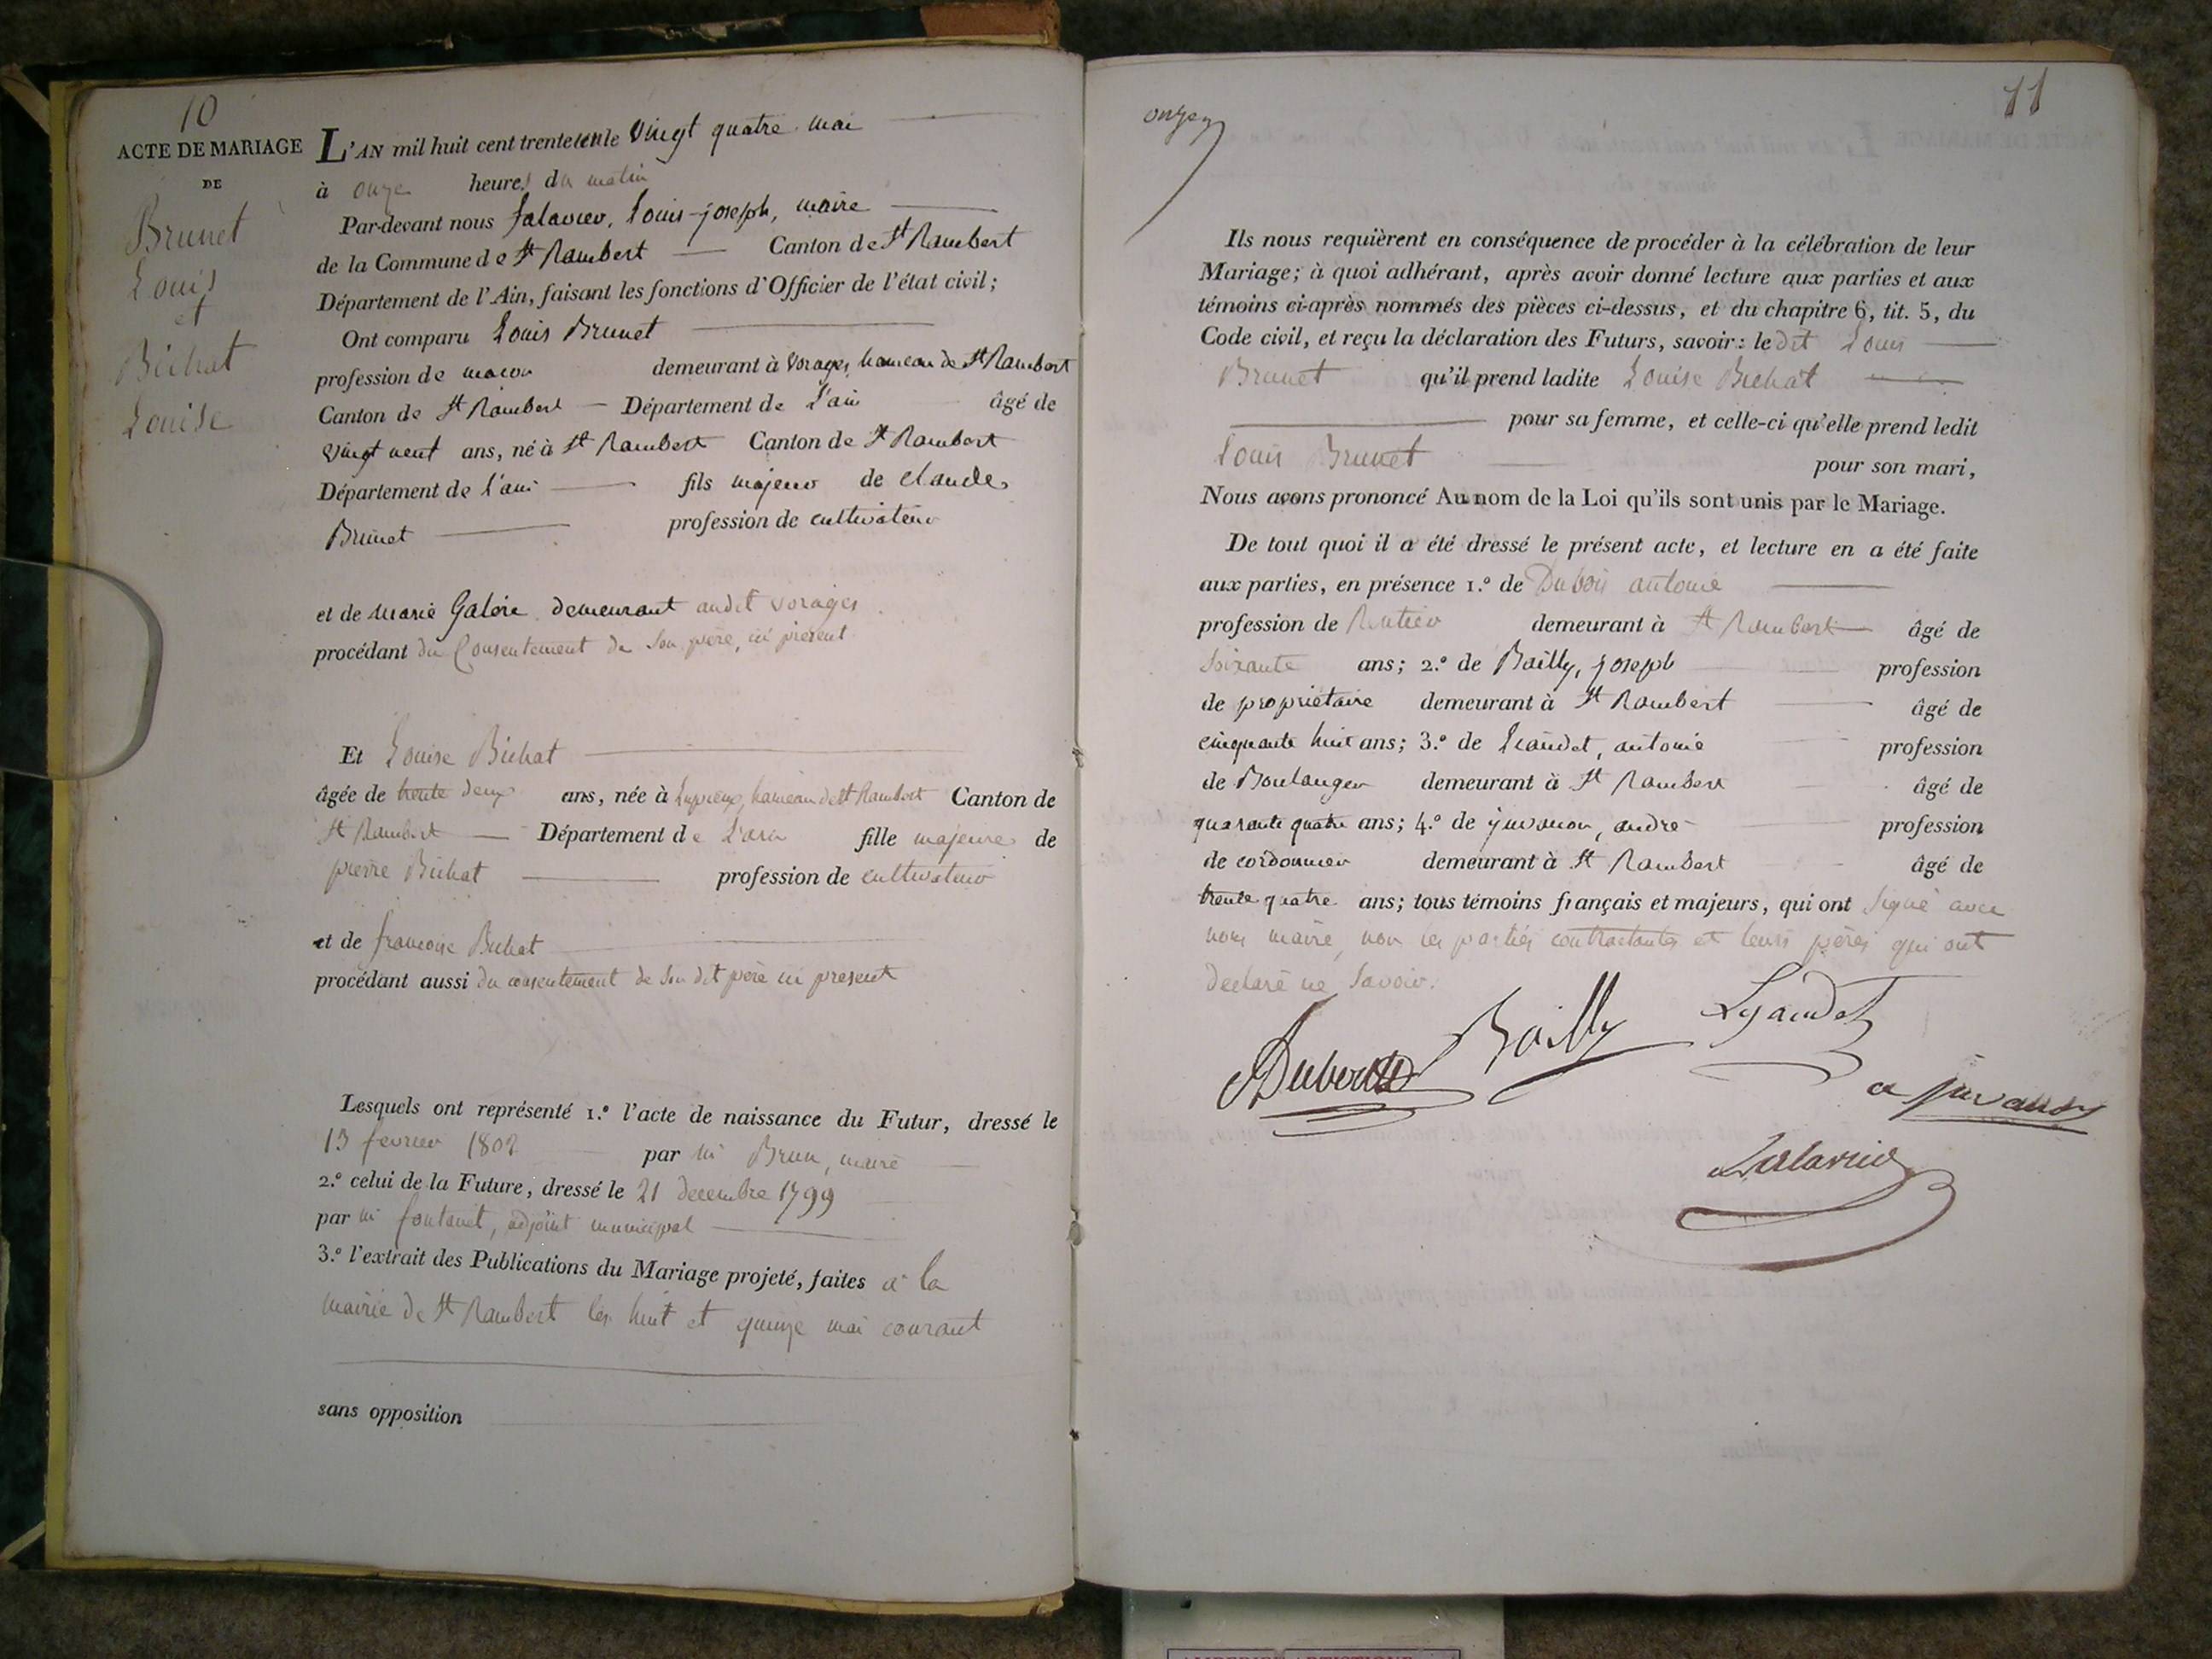 10
ACTE DE MARIAGE
DE
Brunet
Louis
et
Bichat
Louise
L'AN mil huit cent trente et un le vingt quatre mai
à onze heures du matin
Par-devant nous falavier, Louis-joseph, maire
de la Commune de St Rambert Canton de St Rambert
Département de l'Ain, faisant les fonctions d'Officier de l'état civil;
Ont comparu Louis Brunet
profession de macon demeurant à vorages, hameau de St Rambert
Canton de St Rambert Département de l'ain âgé de
vingt neuf ans, né à St Rambert Canton de St Rambert
Département de l'ain fils majeur de claude
Brunet profession de cultivateur
et de marie Galère demeurant audit vorages
procédant du Consentement de son père, ici présent
Et Louise Bichat
âgée de trente deux ans, née à hameau de St Rambert Canton de
St Rambert Département de L'ain fille majeure de
pierre Bichat profession de cultivateur
et de francoise Bichat
procédant aussi du consentement de son dit père ici present
Lesquels ont représenté 1.º l'acte de naissance du Futur, dressé le
13 fevrier 1802 par mr Brun, maire
2.º celui de la Future, dressé le 21 decembre 1799
par mr fontanet, adjoint municipal
3.º l'extrait des Publications du Mariage projeté, faites à la
mairie de St Rambert les huit et quinze mai courant
sans opposition
11
onze
Ils nous requièrent en conséquence de procéder à la célébration de leur
Mariage; à quoi adhérant, après avoir donné lecture aux parties et aux
témoins ci-après nommés des pièces ci-dessus, et du chapitre 6, tit. 5, du
Code civil, et reçu la déclaration des Futurs, savoir: le dit Louis
Brunet qu'il prend ladite Louise Bichat
pour sa femme, et celle-ci qu'elle prend ledit
Louis Brunet pour son mari,
Nous avons prononcé Au nom de la Loi qu'ils sont unis par le Mariage.
De tout quoi il a été dressé le présent acte, et lecture en a été faite
aux parties, en présence 1.º de Dubois antoine
profession de Rentier demeurant à St Rambert âgé de
soixante ans; 2.º de Bailly, joseph profession
de propriétaire demeurant à St Rambert âgé de
cinquante huit ans; 3.º de Liaudet, antoine profession
de Boulanger demeurant à St Rambert âgé de
quarante quatre ans; 4.º de juvanon, andré profession
de cordonnier demeurant à St Rambert âgé de
trente quatre ans; tous témoins français et majeurs, qui ont signé avec
nous maire, non les parties contractantes et leurs pères qui ont
declaré ne savoir.
Bailly
Lyaudet
a juvanon